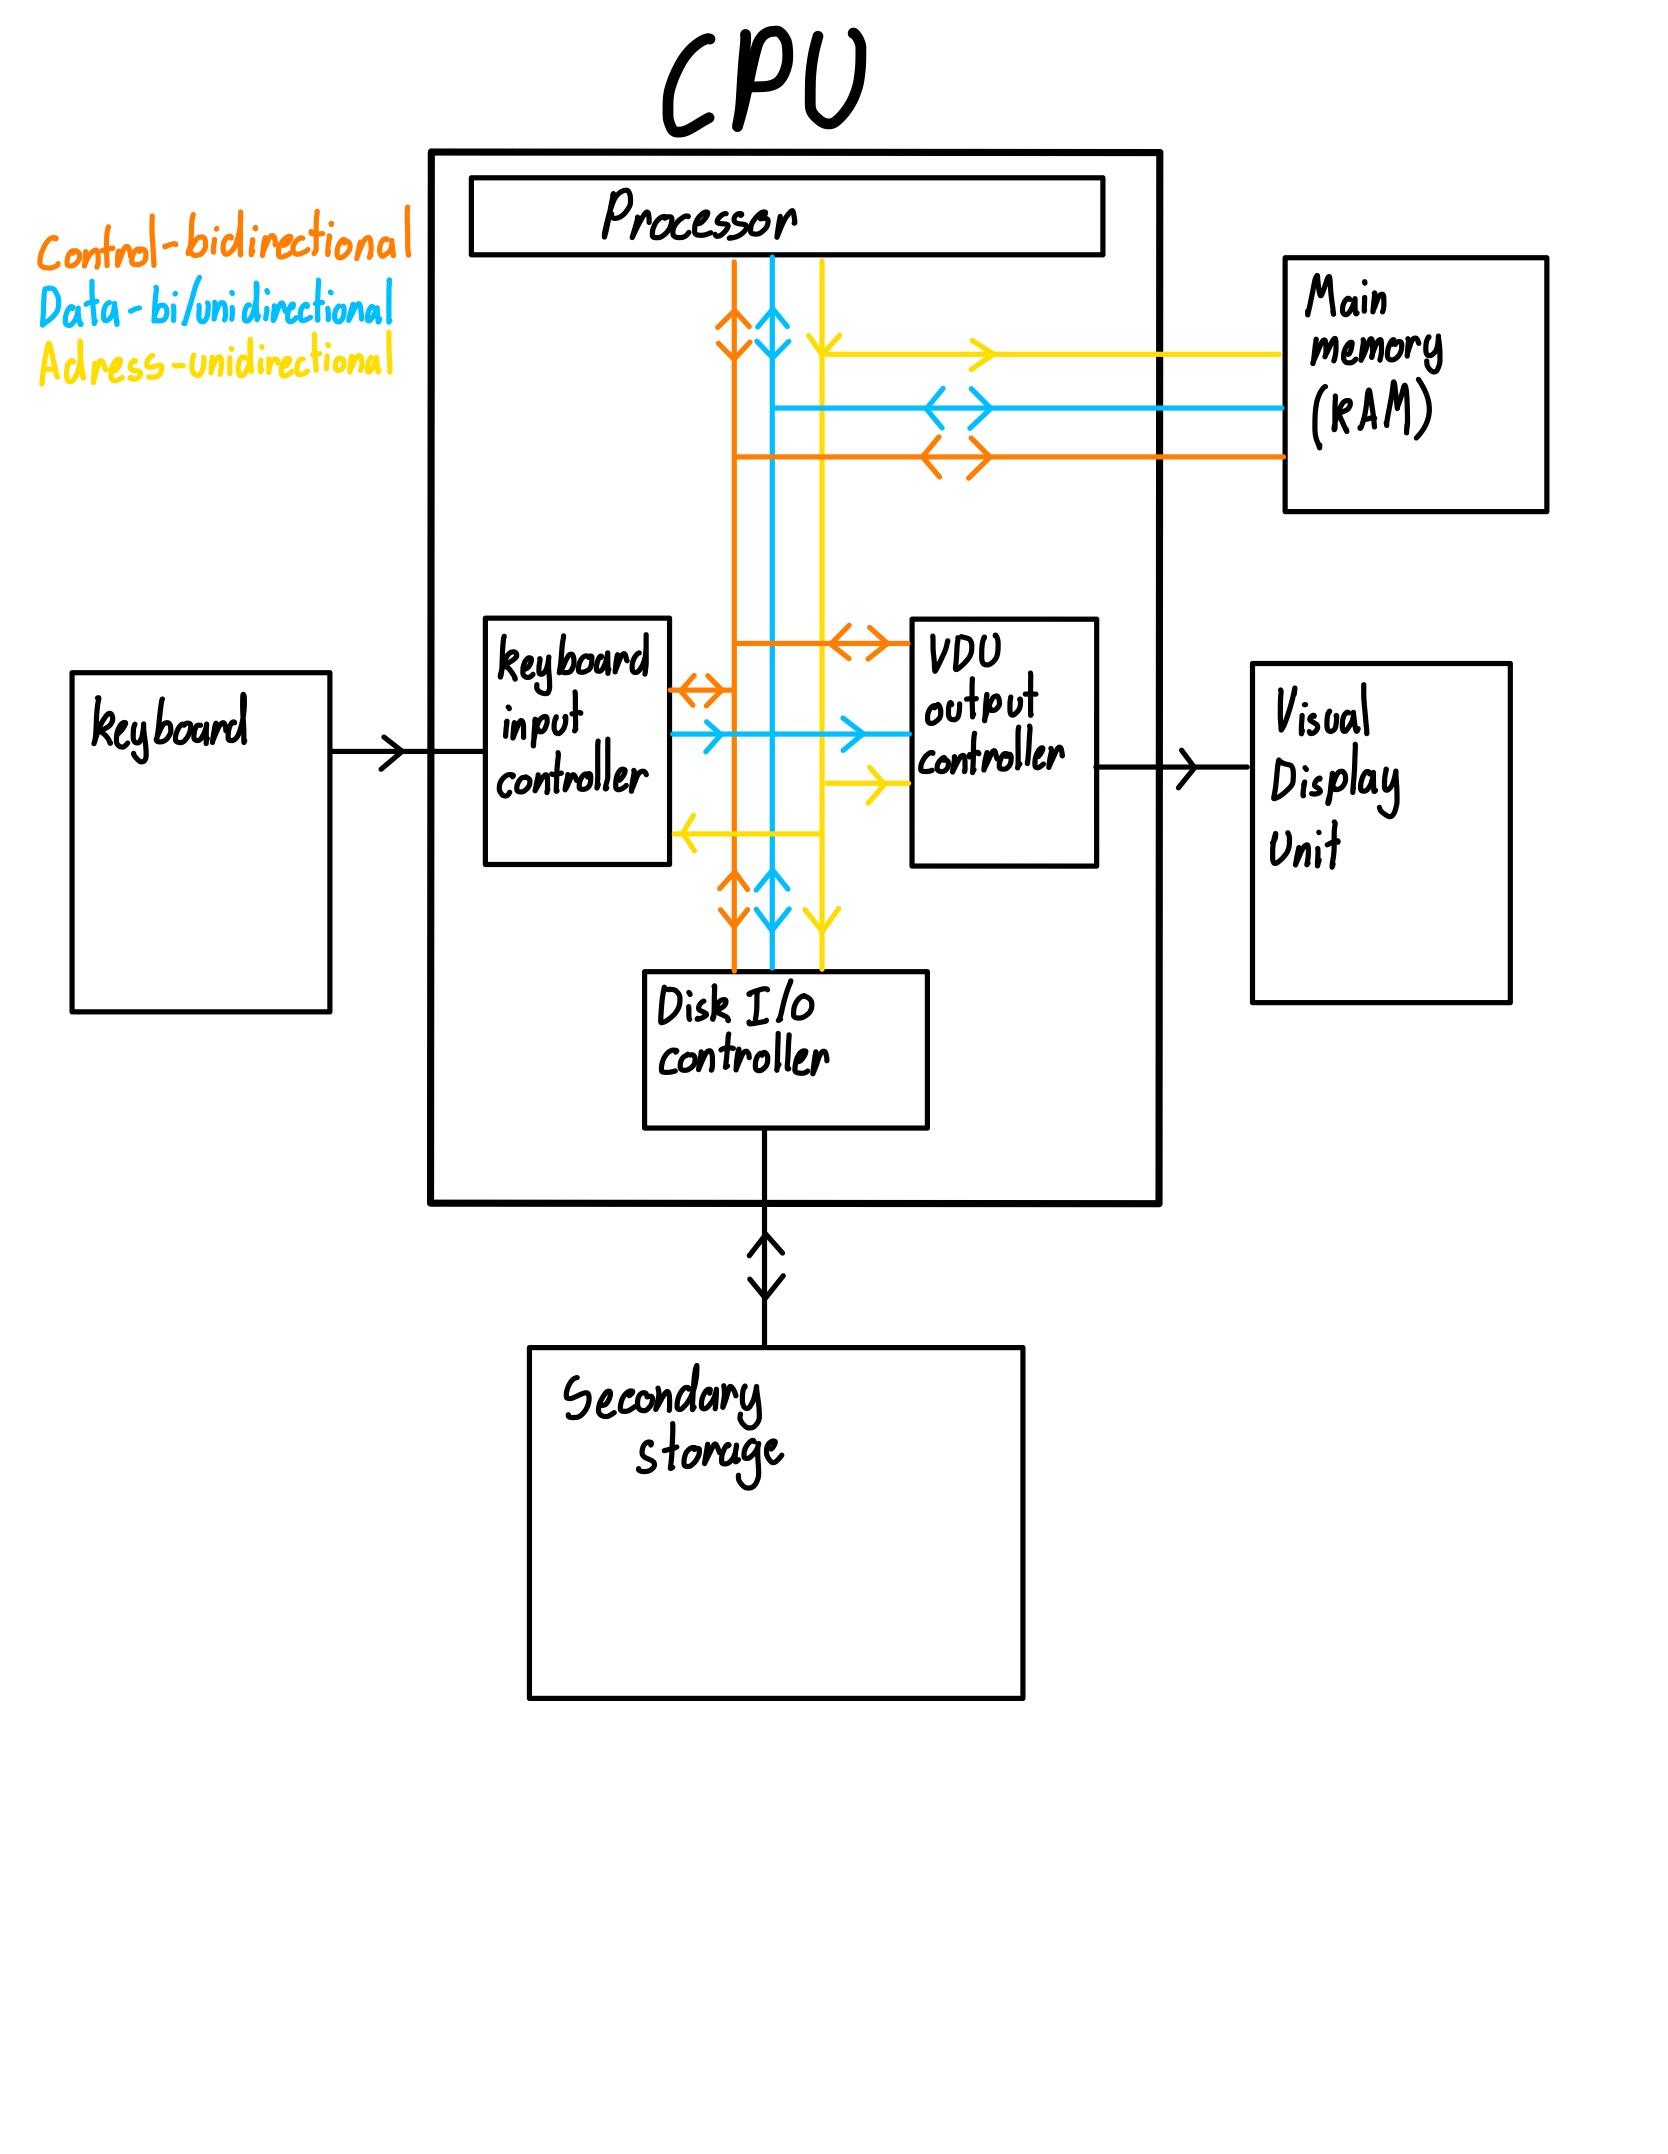 CPU
Processor
Control-bidirectional
Data-bi/unidirectional
Adress-unidirectional
Main
memory
(RAM)
Keyboard
input
controller
VDU
output
controller
Keyboard
Visual
Display
Unit
Disk I/O
controller
Secondary
storage